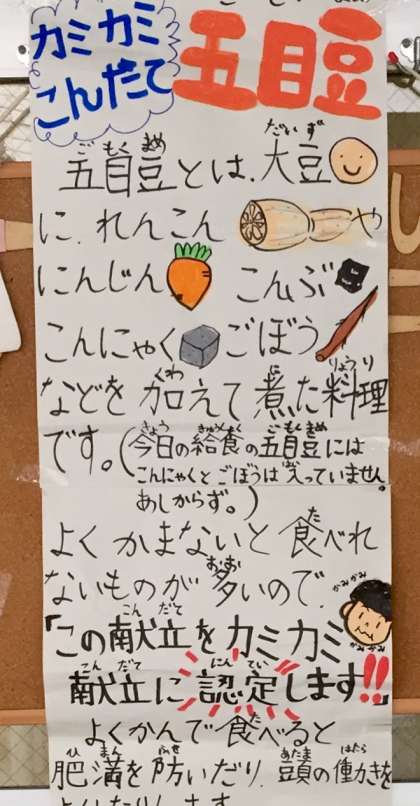 カミカミ
こんだて
五目豆
ごもくまめ だいず
五目豆とは、大豆
に、れんこん や
にんじん こんぶ
こんにゃく ごぼう
くわ に りょうり
などを加えて煮た料理
きょう きゅうしょく ごもくまめ
です。(今日の給食の五目豆には
はい
こんにゃくとごぼうは入っていません。
あしからず。)
た
よくかまないと食べれ
おお
ないものが多いので、
かみかみ
こんだて
「この献立をカミカミ
かみ かみ
こんだて にんてい
献立に認定します!!」
た
よくかんで食べると
ひまん ふせ あたま はたら
肥満を防いだり、頭の働きを